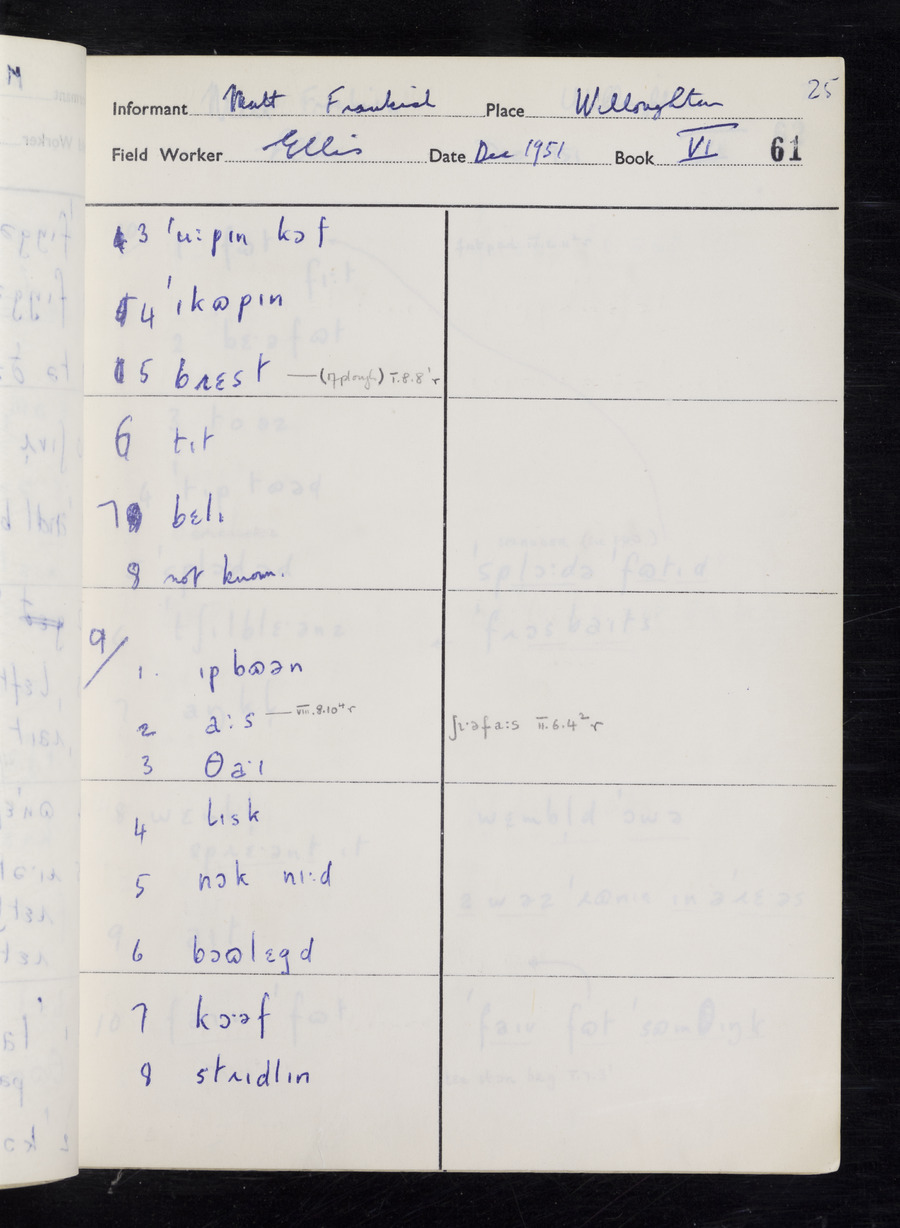 25
Informant Matt Frankish Place Willoughton
Field Worker Ellis Date Dec 1951 Book VI 61
3 ˈuːpɪn kɔf
4 ˈɪkɷpɪn
5 bɹɛst — (of plough) I.8.8ˈr
6 tɪt
7 bɛlɪ
8 not known.
9/
1. ɪp bɷən
2 aːs — VIII.8.10ᴴr ʃɪˑəfaːs II.6.4²r
3 θaˑɪ
4 lɪsk
5 nɔk nɪːd
6 bɔɷlɛgd
7 kɔˑəf
8 stɹɪdlɪn